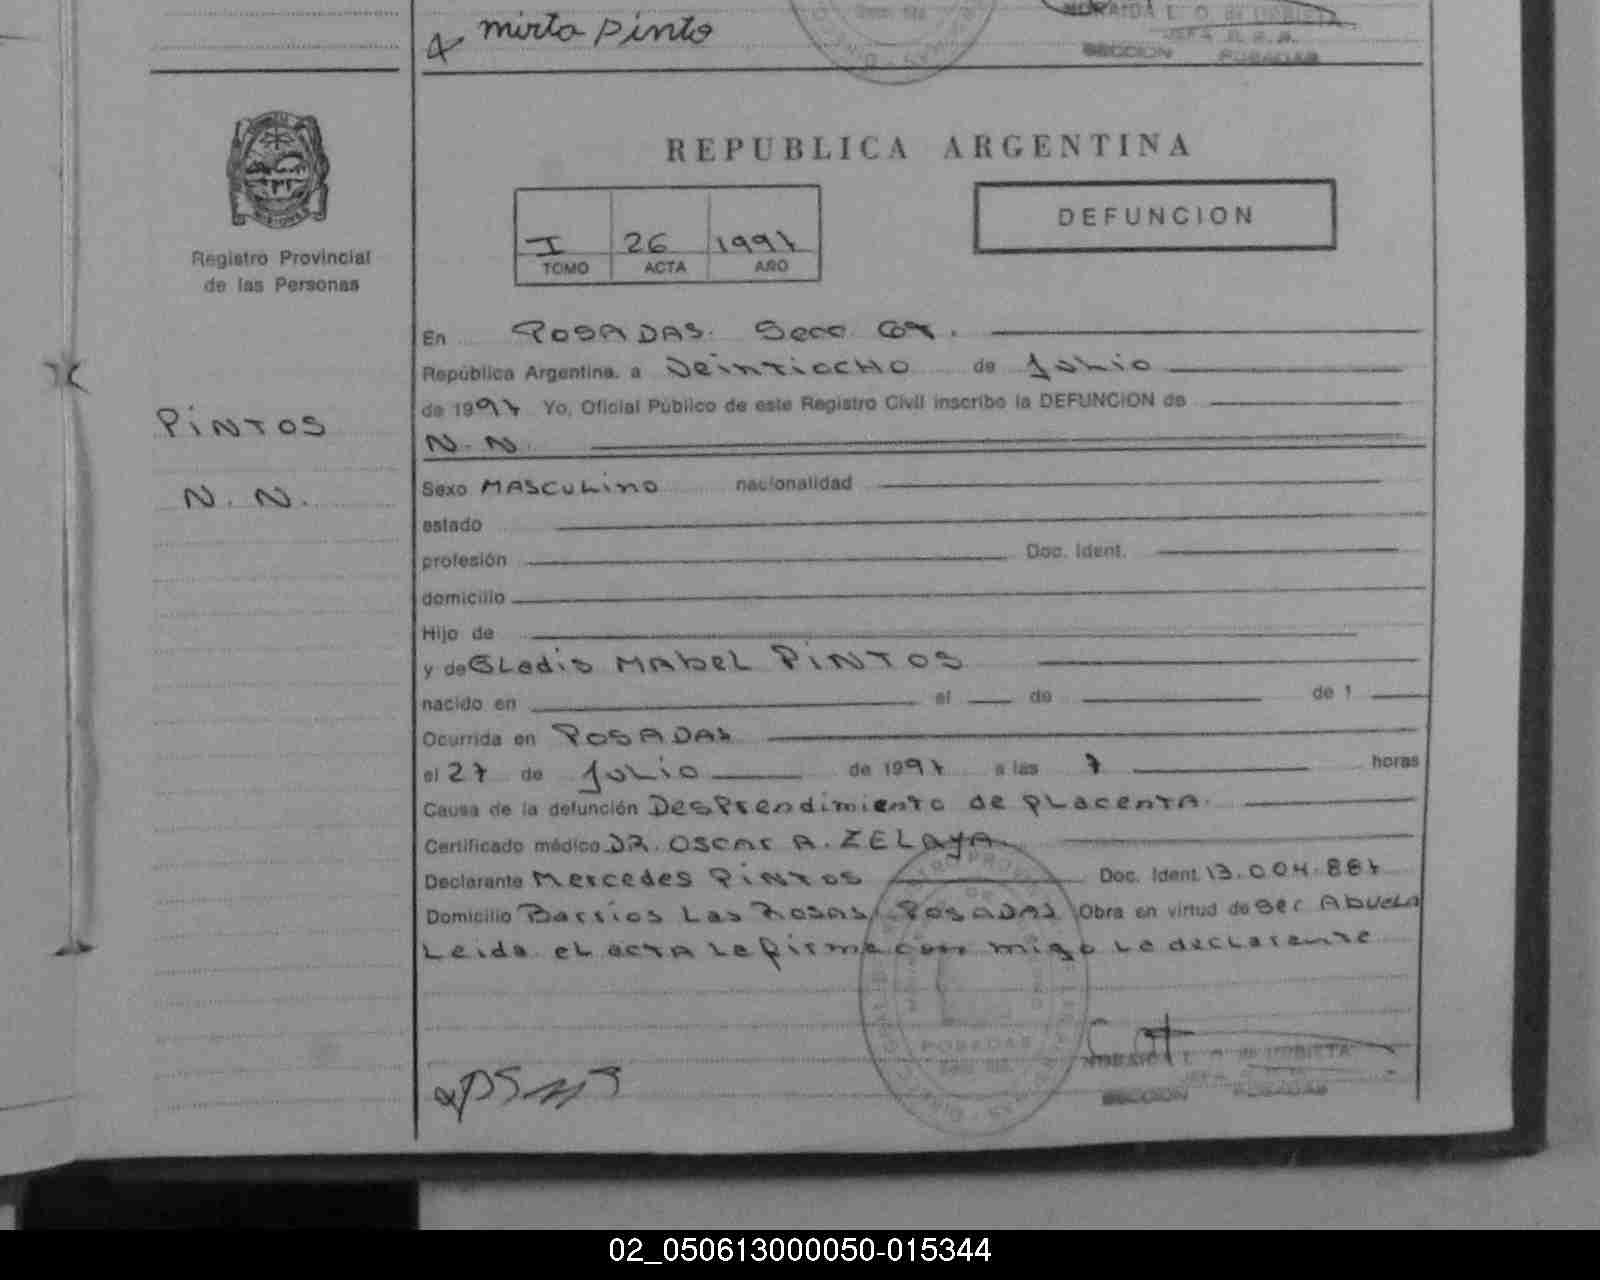 mirta pinto
NORAIDA L. O. de URBIETA
SECCION POSADAS
REPUBLICA ARGENTINA
DEFUNCION
I 26 1997
TOMO ACTA AÑO
MISIONES
Registro Provincial
de las Personas
PINTOS
N. N.
En POSADAS. Secc
República Argentina, a Veintiocho de Julio
de 1997 Yo, Oficial Público de este Registro Civil inscribo la DEFUNCION de
N. N.
Sexo MASCULINO nacionalidad
estado
profesión Doc. Ident.
domicilio
Hijo de
y de Gladis MAbel PINTOS
nacido en el de de 1
Ocurrida en POSADAS
el 27 de Julio de 1997 a las 7 horas
Causa de la defunción Desprendimiento de PLACENTA.
Certificado médico DR. OSCAR A. ZELAYA
Declarante Mercedes PINTOS Doc. Ident. 13.004.887
Domicilio Barrios Las Rosas, POSADAS Obra en virtud de ser Abuela
Leida el acta la firma con migo la declarante
POSADAS
NORAIDA L. O. de URBIETA
SECCION POSADAS
02_050613000050-015344